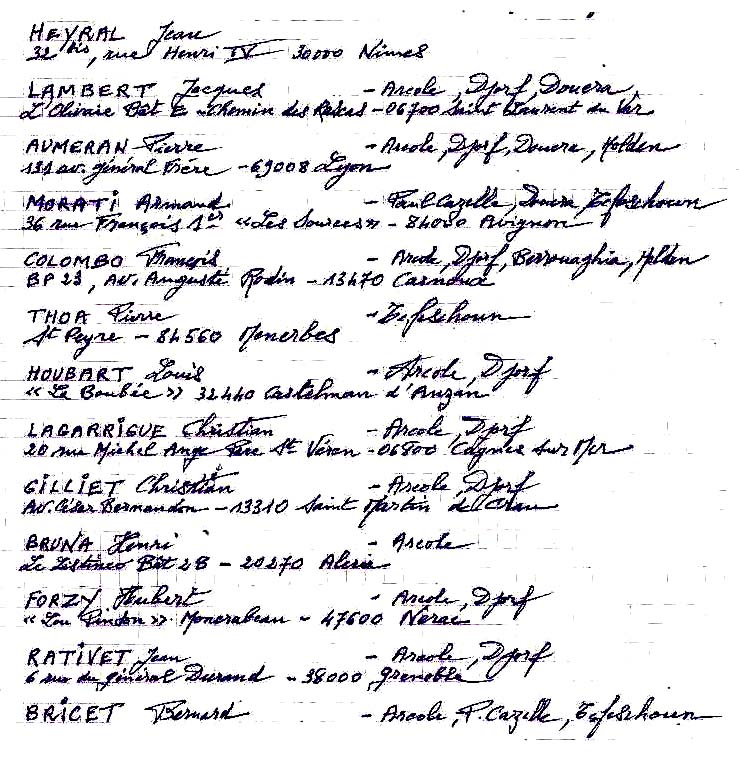 HEYRAL Jean
32 bis, rue Henri IV 30000 Nîmes
LAMBERT Jacques - Arcole, Djorf, Douera,
L'Olivaie Bât E - Chemin des Rascas - 06700 Saint Laurent du Var
AUMERAN Pierre - Arcole, Djorf, Douera, Holden
131 av. général Frère - 69008 Lyon
MORATI Armand - Paul Cazelle, Douera, Tefeschoun
36 rue François 1er "Les Sources" - 84000 Avignon
COLOMBO François - Arcole, Djorf, Berrouaghia, Holden
BP 23, Av. Auguste Rodin - 13470 Carnoux
THOA Pierre - Tefeschoun
St Peyre - 84560 Menerbes
HOUBART Louis - Arcole, Djorf
« La Boubée » 32440 Castelnau d'Auzan
LAGARRIGUE Christian - Arcole, Djorf
20 rue Michel Ange Parc St Véran - 06800 Cagnes sur Mer
GILLIET Christian - Arcole, Djorf
Av. César Bernaudon - 13310 Saint Martin de Crau
BRUNA Henri - Arcole
Le Bât 2B - 20270 Aleria
FORZY Hubert - Arcole, Djorf
« Lou Pindou » Moncrabeau - 47600 Nerac
RATIVET Jean - Arcole, Djorf
6 rue du général Durand - 38000 Grenoble
BRICET Bernard - Arcole, P. Cazelle, Tefeschoun